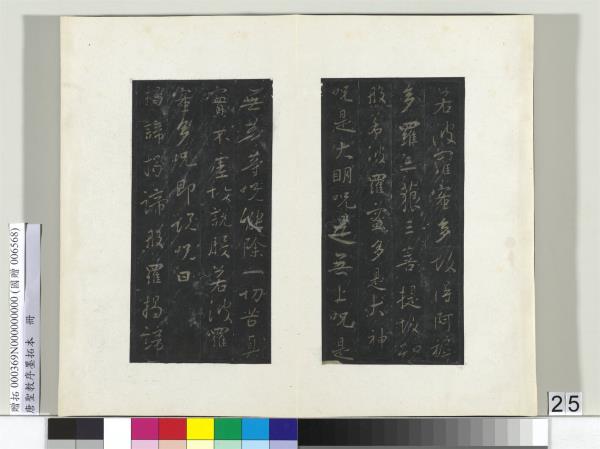 若波羅蜜多故得阿耨
多羅三藐三菩提故知
般若波羅蜜多是大神
咒是大明咒是無上咒是
無等等咒能除一切苦真
實不虛故說般若波羅
蜜多咒即說咒曰
揭諦揭諦般羅揭諦
贈拓 000369N000000000 (國贈 006568)
唐聖教序墨拓本 冊
25